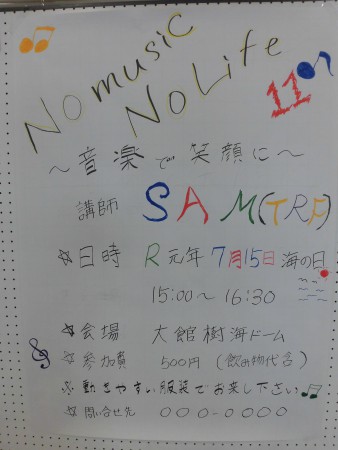 No music
No Life
11
～音楽で笑顔に～
講師 SAM(TRF)
☆日時 R元年7月15日海の日
15:00～16:30
☆会場 大館樹海ドーム
☆参加費 500円(飲み物代含)
☆動きやすい服装でお来し下さい
☆問い合せ先 〇〇〇-〇〇〇〇